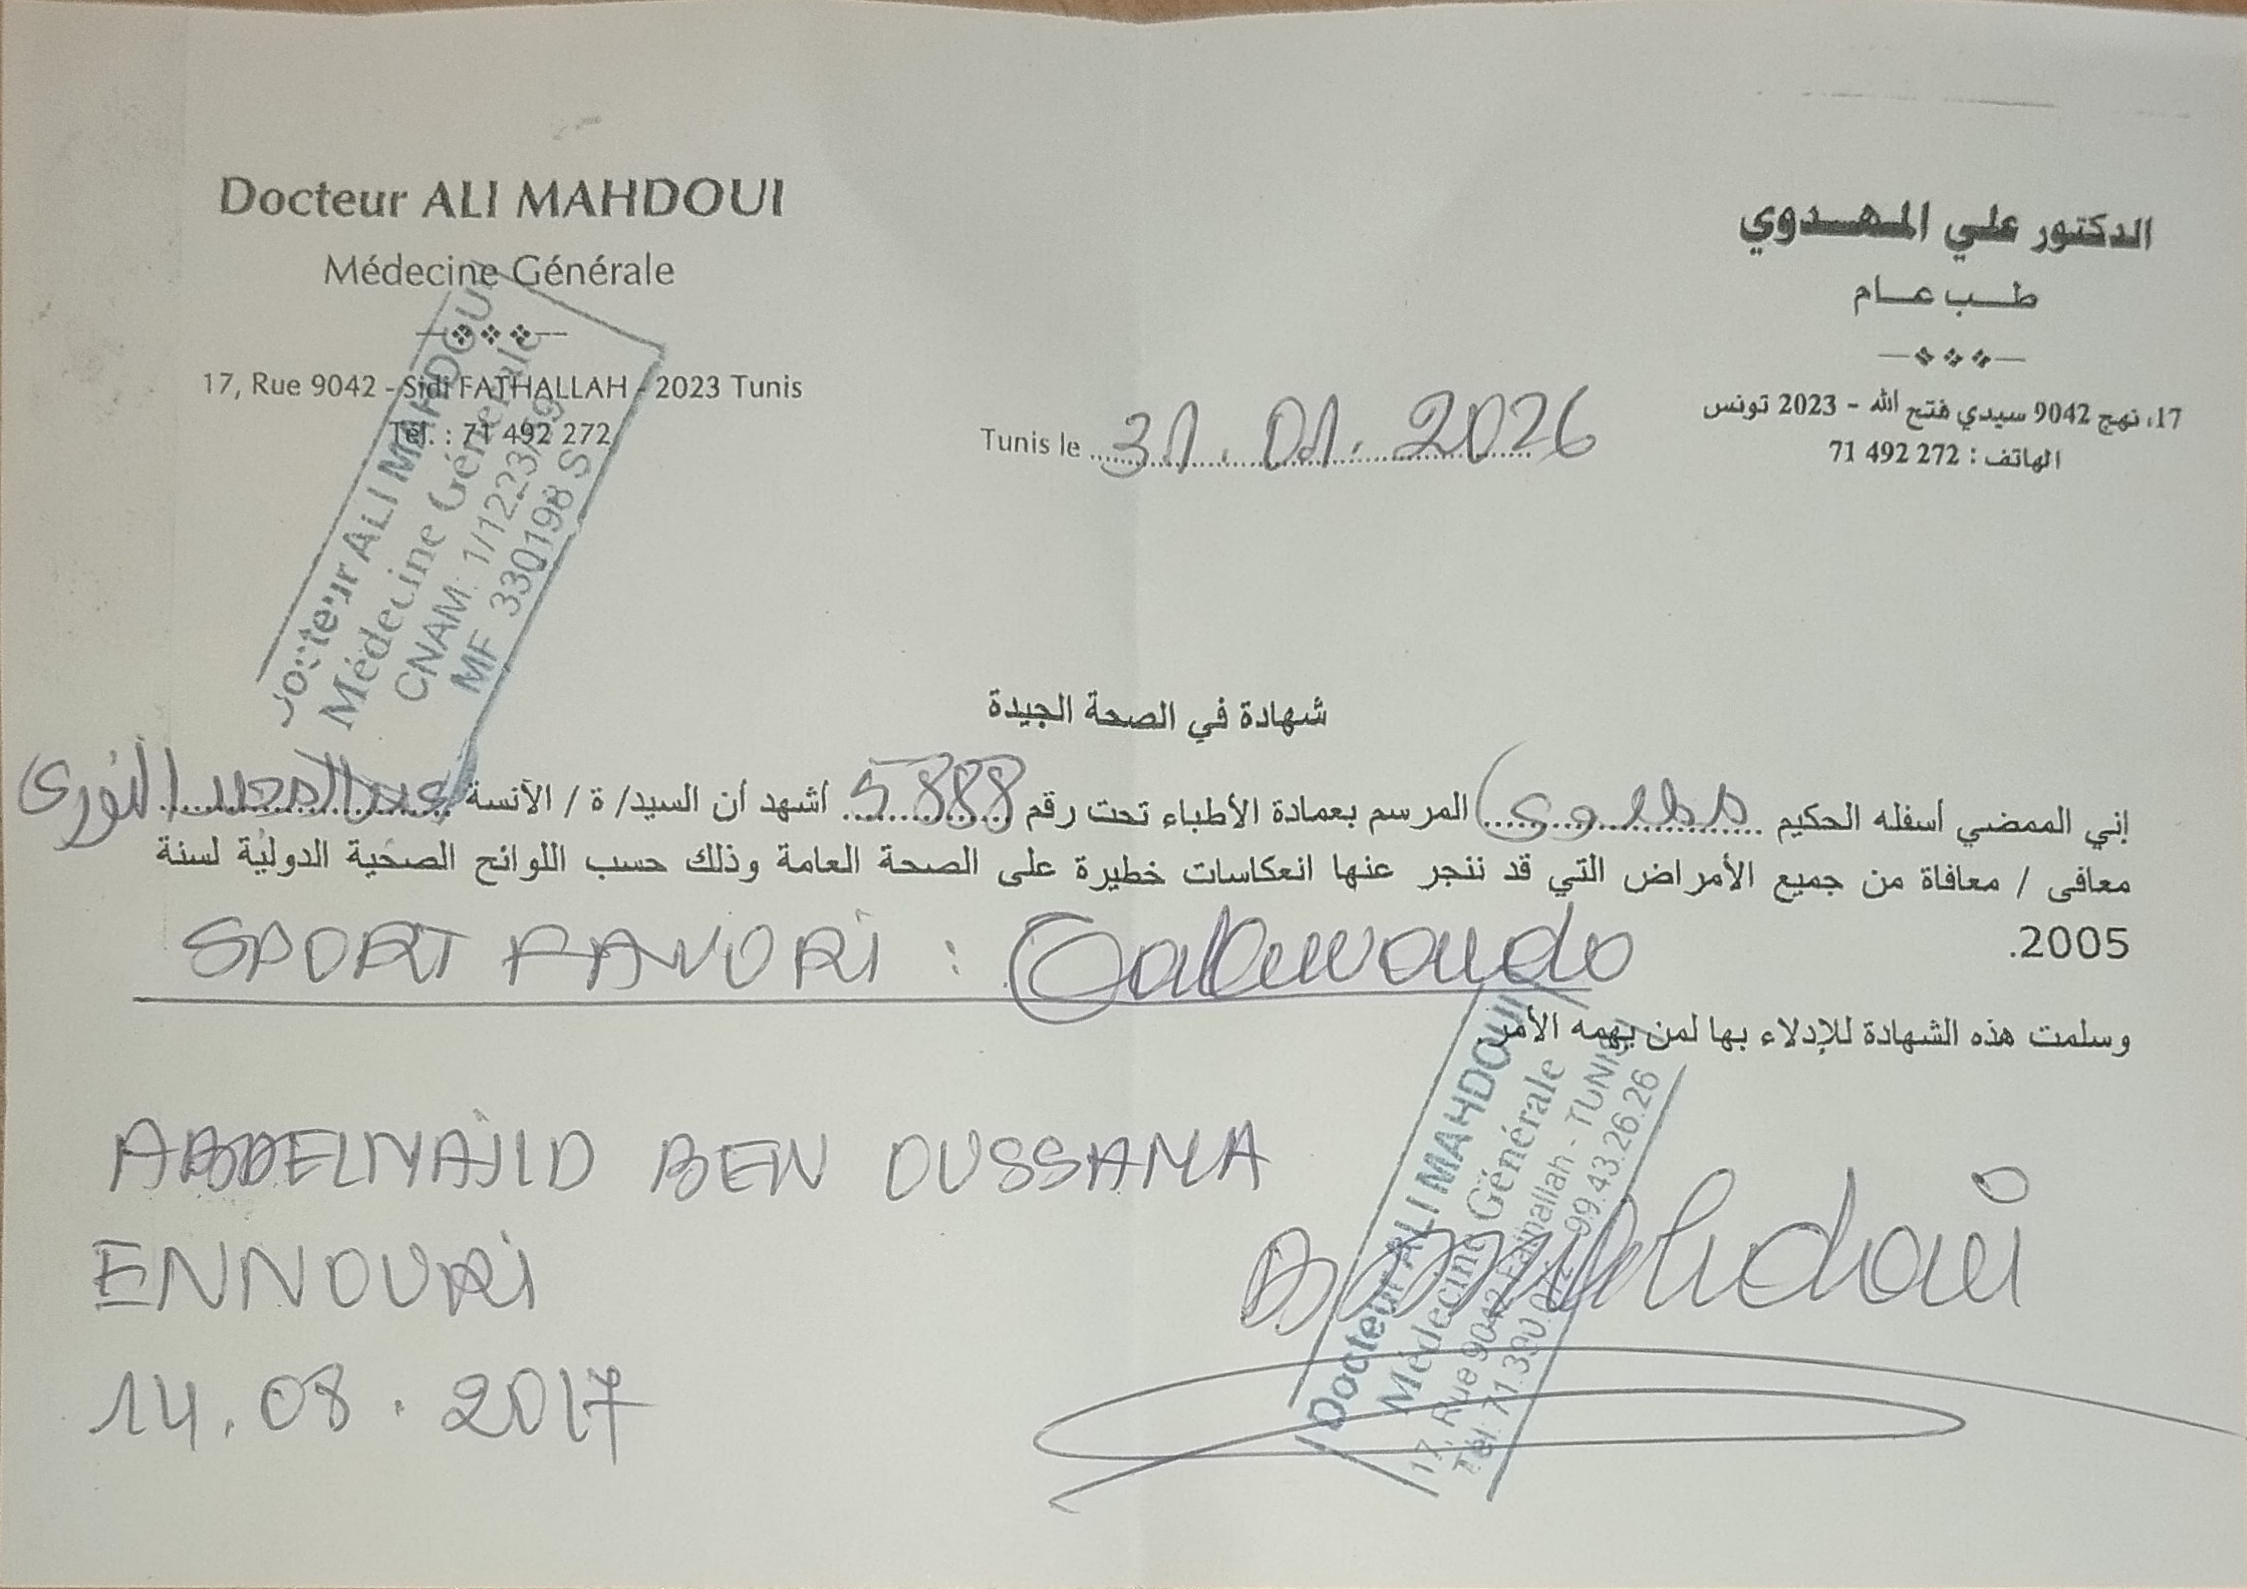 Docteur ALI MAHDOUI
Médecine Générale
17, Rue 9042 - Sidi FATHALLAH - 2023 Tunis
Tél. : 71 492 272
الدكتور علي المهدوي
طب عام
17، نهج 9042 سيدي فتح الله - 2023 تونس
الهاتف : 272 492 71
Tunis le 31.01.2026
Docteur ALI MAHDOUI
Médecine Générale
CNAM: 1/1223/59
MF 330198 S
شهادة في الصحة الجيدة
إني الممضي أسفله الحكيم مهدوي المرسم بعمادة الأطباء تحت رقم 5888 أشهد أن السيد/ ة / الآنسة عبد المجيد النوري
معافى / معافاة من جميع الأمراض التي قد تنجر عنها انعكاسات خطيرة على الصحة العامة وذلك حسب اللوائح الصحية الدولية لسنة
2005.
SPORT FAVORI : Taekwondo
وسلمت هذه الشهادة للإدلاء بها لمن يهمه الأمر.
ABDELMAJID BEN OUSSAMA
ENNOURI
14.08.2017
Docteur ALI MAHDOUI
Médecine Générale
17, Rue 9042 Fathallah - TUNIS
Tél: 71.390.072 99.43.26.26
Mahdoui